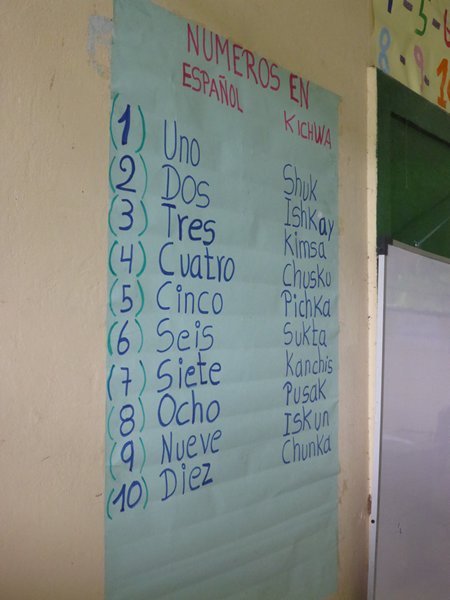 NUMEROS EN
ESPAÑOL KICHWA
(1) Uno Shuk
(2) DOS Ishkay
(3) Tres Kimsa
(4) Cuatro Chusku
(5) Cinco Pichka
(6) Seis Sukta
(7) Siete Kanchis
(8) Ocho Pusak
(9) Nueve Iskun
(10) Diez Chunka